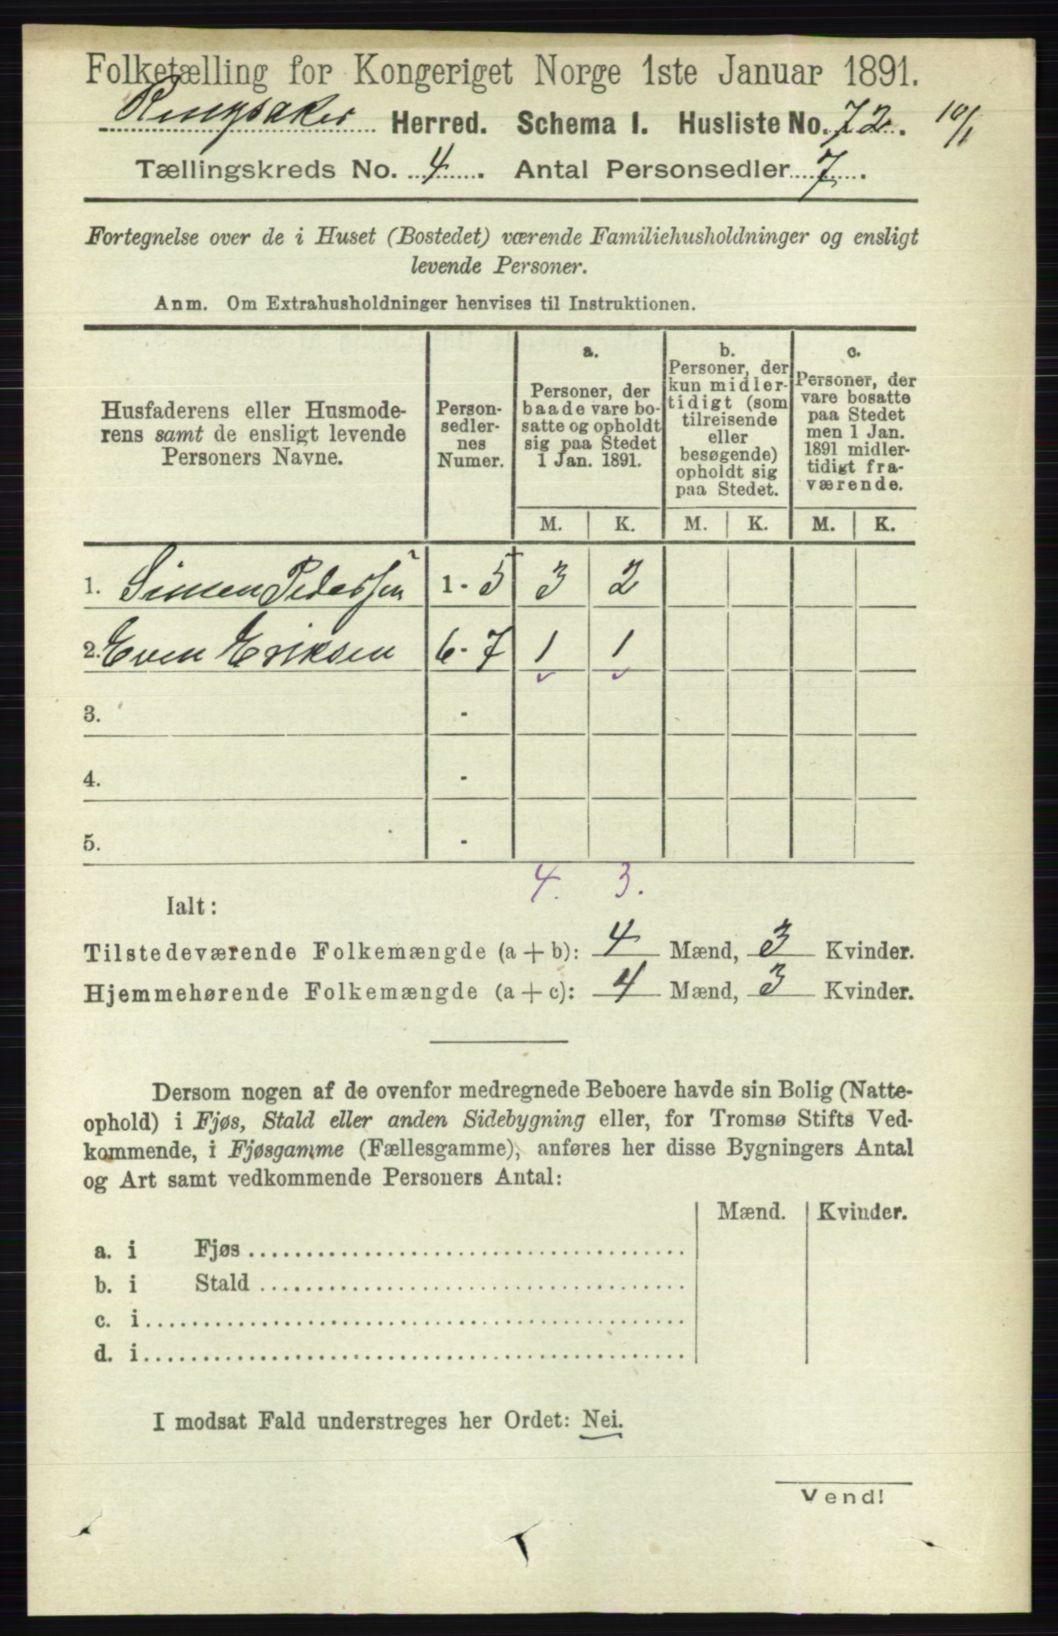 Folketælling for Kongeriget Norge 1ste Januar 1891.
Ringsaker Herred. Schema I. Husliste No. 72. 10/1
Tællingskreds No. 4. Antal Personsedler 7.
Fortegnelse over de i Huset (Bostedet) værende Familiehusholdninger og ensligt
levende Personer.
Anm. Om Extrahusholdninger henvises til Instruktionen.
Husfaderens eller Husmode-
rens samt de ensligt levende
Personers Navne.
Person-
sedler-
nes
Numer.
a.
Personer, der
baade vare bo-
satte og opholdt
sig paa Stedet
1 Jan. 1891.
b.
Personer, der
kun midler-
tidigt (som
tilreisende
eller
besøgende)
opholdt sig
paa Stedet.
c.
Personer, der
vare bosatte
paa Stedet
men 1 Jan.
1891 midler-
tidigt fra-
værende.
M. K. M. K. M. K.
1. Simen Pedersen 1 - 5 3 2
2. Even Eriksen 6 - 7 1 1
3. -
4. -
5. -
4. 3.
Ialt:
Tilstedeværende Folkemængde (a + b): 4 Mænd, 3 Kvinder.
Hjemmehørende Folkemængde (a + c): 4 Mænd, 3 Kvinder.
Dersom nogen af de ovenfor medregnede Beboere havde sin Bolig (Natte-
ophold) i Fjøs, Stald eller anden Sidebygning eller, for Tromsø Stifts Ved-
kommende, i Fjøsgamme (Fællesgamme), anføres her disse Bygningers Antal
og Art samt vedkommende Personers Antal:
Mænd. Kvinder.
a. i Fjøs
b. i Stald
c. i
d. i
I modsat Fald understreges her Ordet: Nei.
Vend!